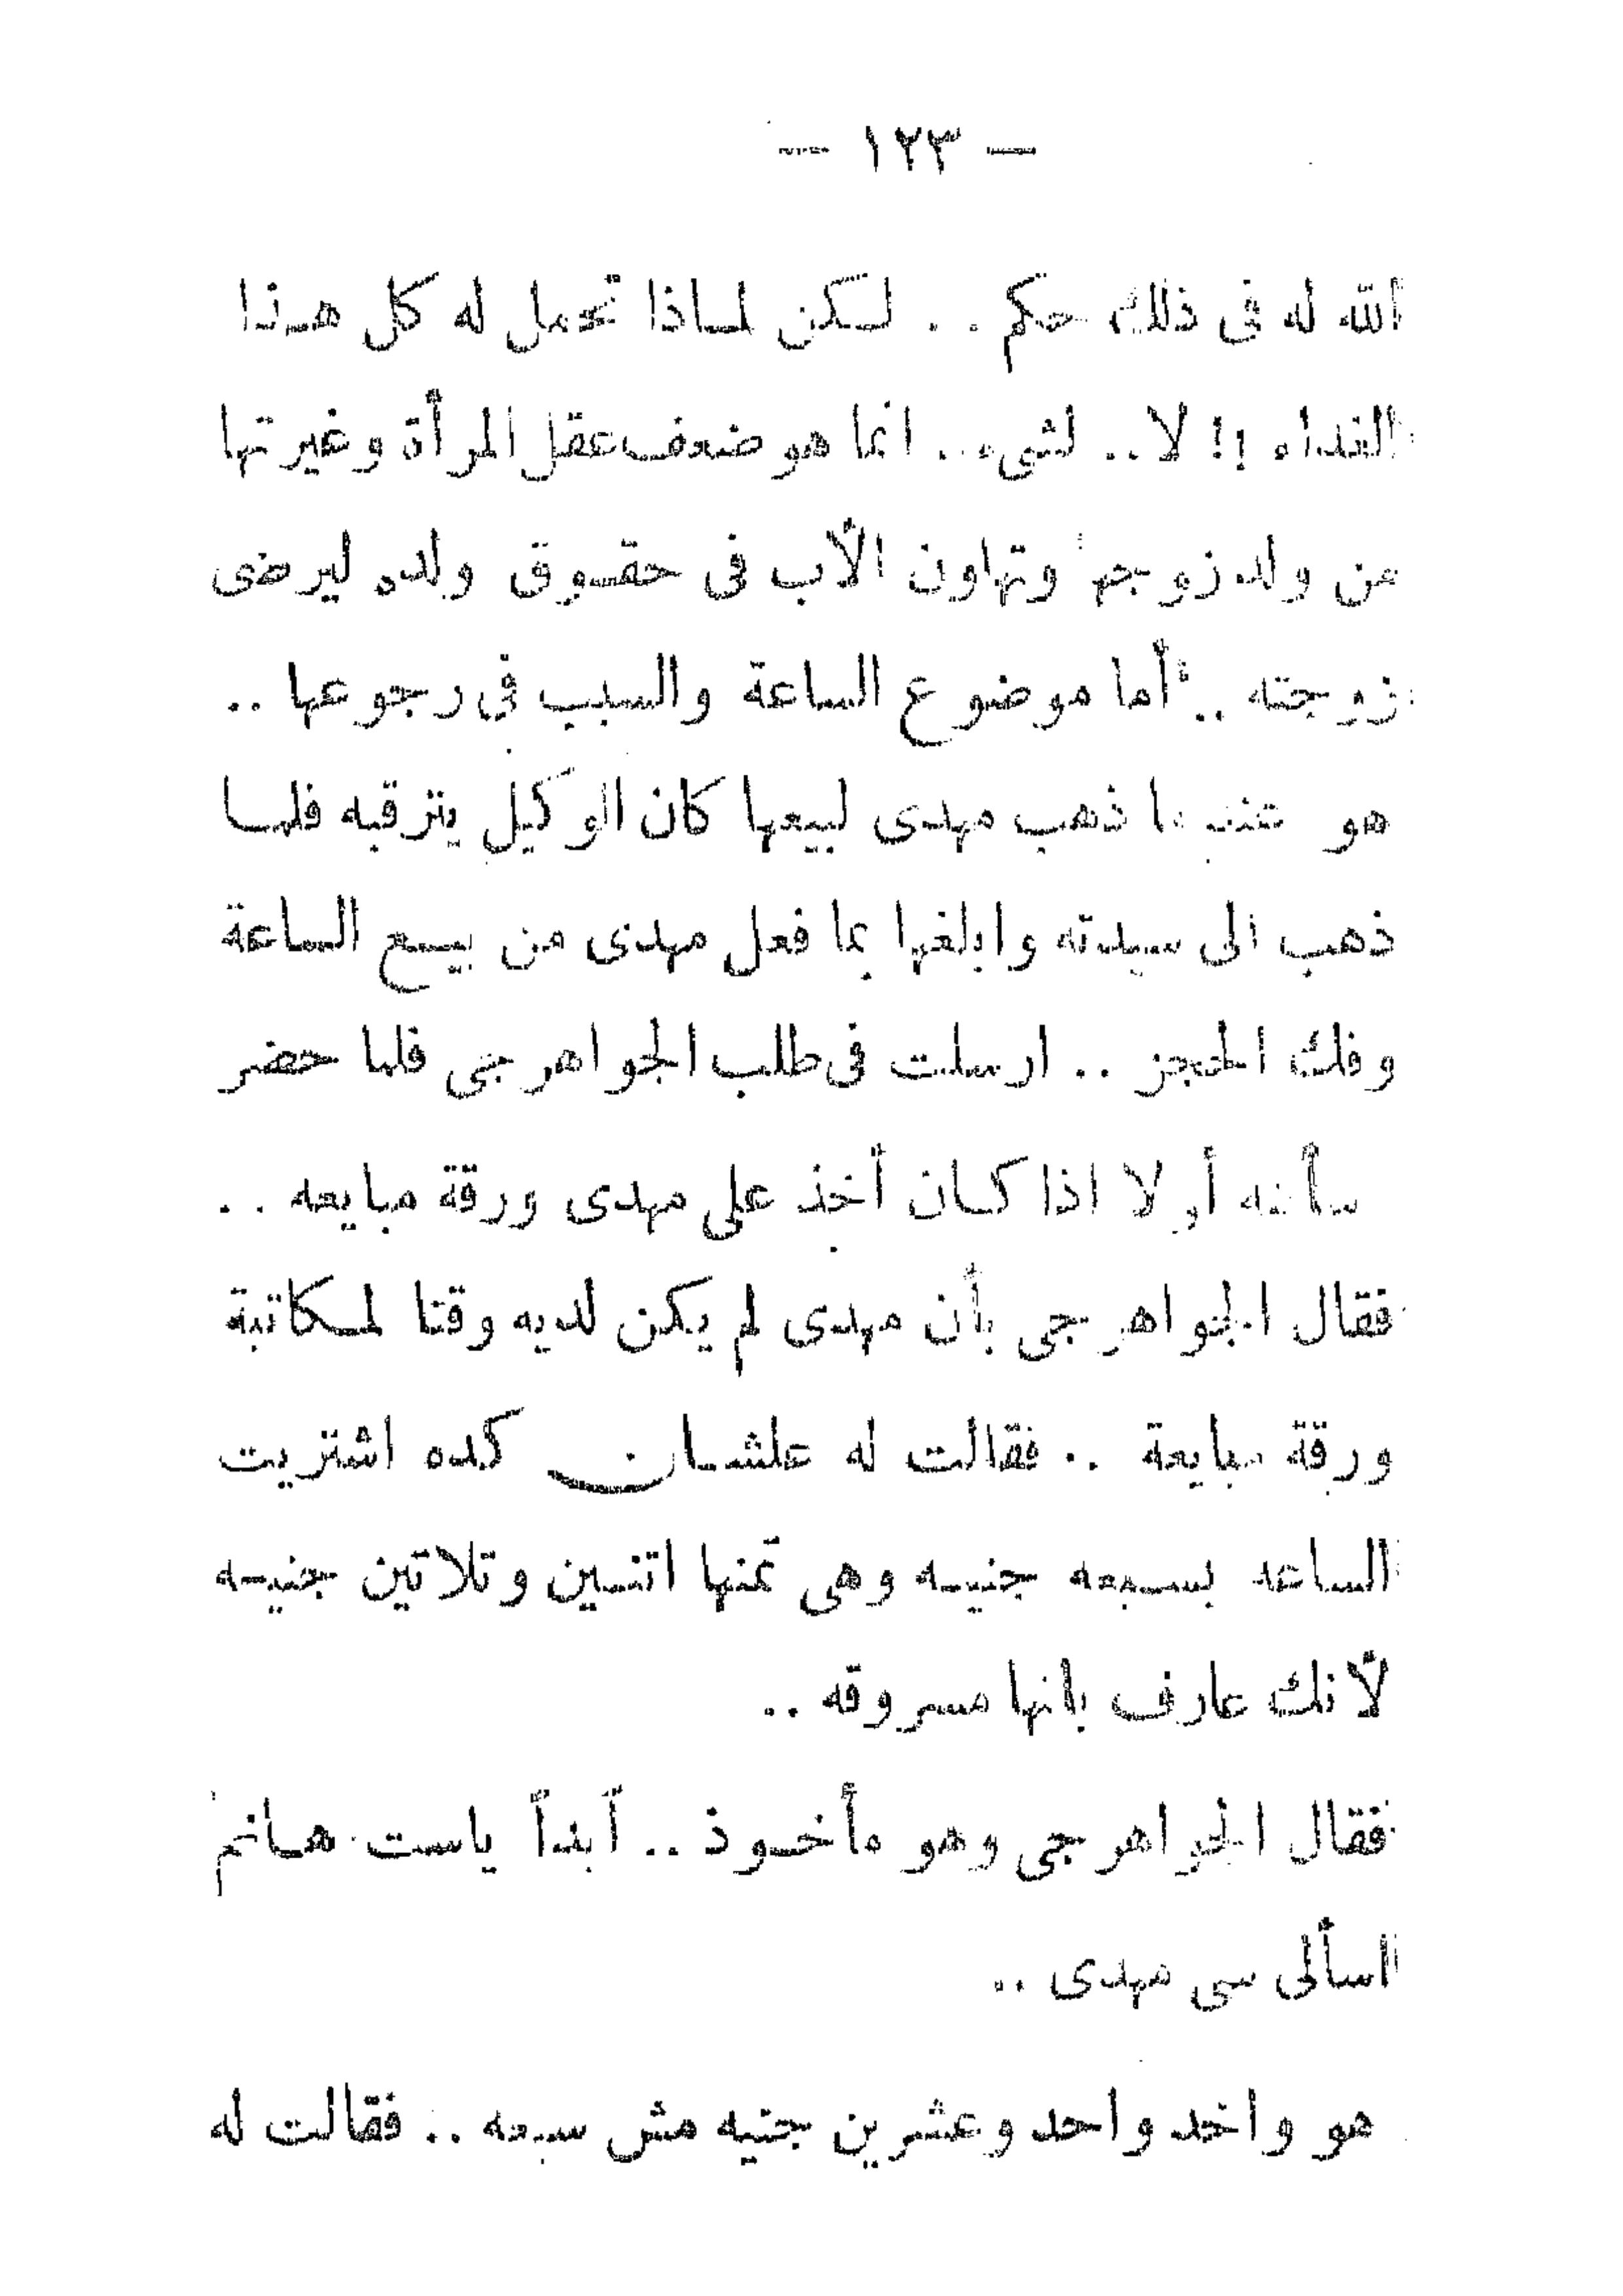 — ١٢٣ —
الله له فى ذلك حكم . . لكن لماذا تحمل له كل هذا
العداء ؟! لا . . لشىء . . انما هو ضعف عقل المرأة وغيرتها
من ولد زوجها وتهاون الأب فى حقوق ولده ليرضى
زوجته . . أما موضوع الساعة والسبب فى رجوعها . .
هو عندما ذهب مهدى لبيعها كان الوكيل يترقبه فلما
ذهب الى سيدته وابلغها بما فعل مهدى من بيع الساعة
وفك الحجز . . ارسلت فى طلب الجواهرجى فلما حضر
سألته أولا اذا كان أخذ على مهدى ورقة مبايعه . .
فقال الجواهرجى بأن مهدى لم يكن لديه وقتا لمكاتبة
ورقة مبايعة . . فقالت له علشان كده اشتريت
الساعه بسبعه جنيه وهى تمنها اتنين وتلاتين جنيه
لأنك عارف بانها مسروقه . .
فقال الجواهرجى وهو مأخوذ . . أبداً ياست هانم
اسألى سى مهدى . .
هو واخد واحد وعشرين جنيه مش سبعه . . فقالت له